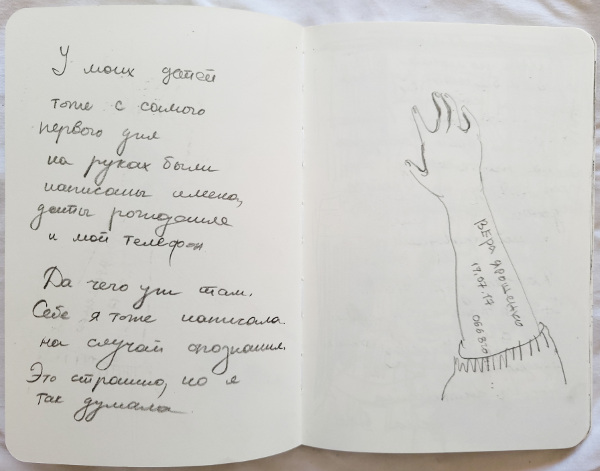 У моих детей
тоже с самого
первого дня
на руках были
написаны имена,
даты рождения
и мой телефон
Да чего уж там.
Себе я тоже написала
на случай опознания.
Это страшно, но я
так думала
ВЕРА
19.07.17